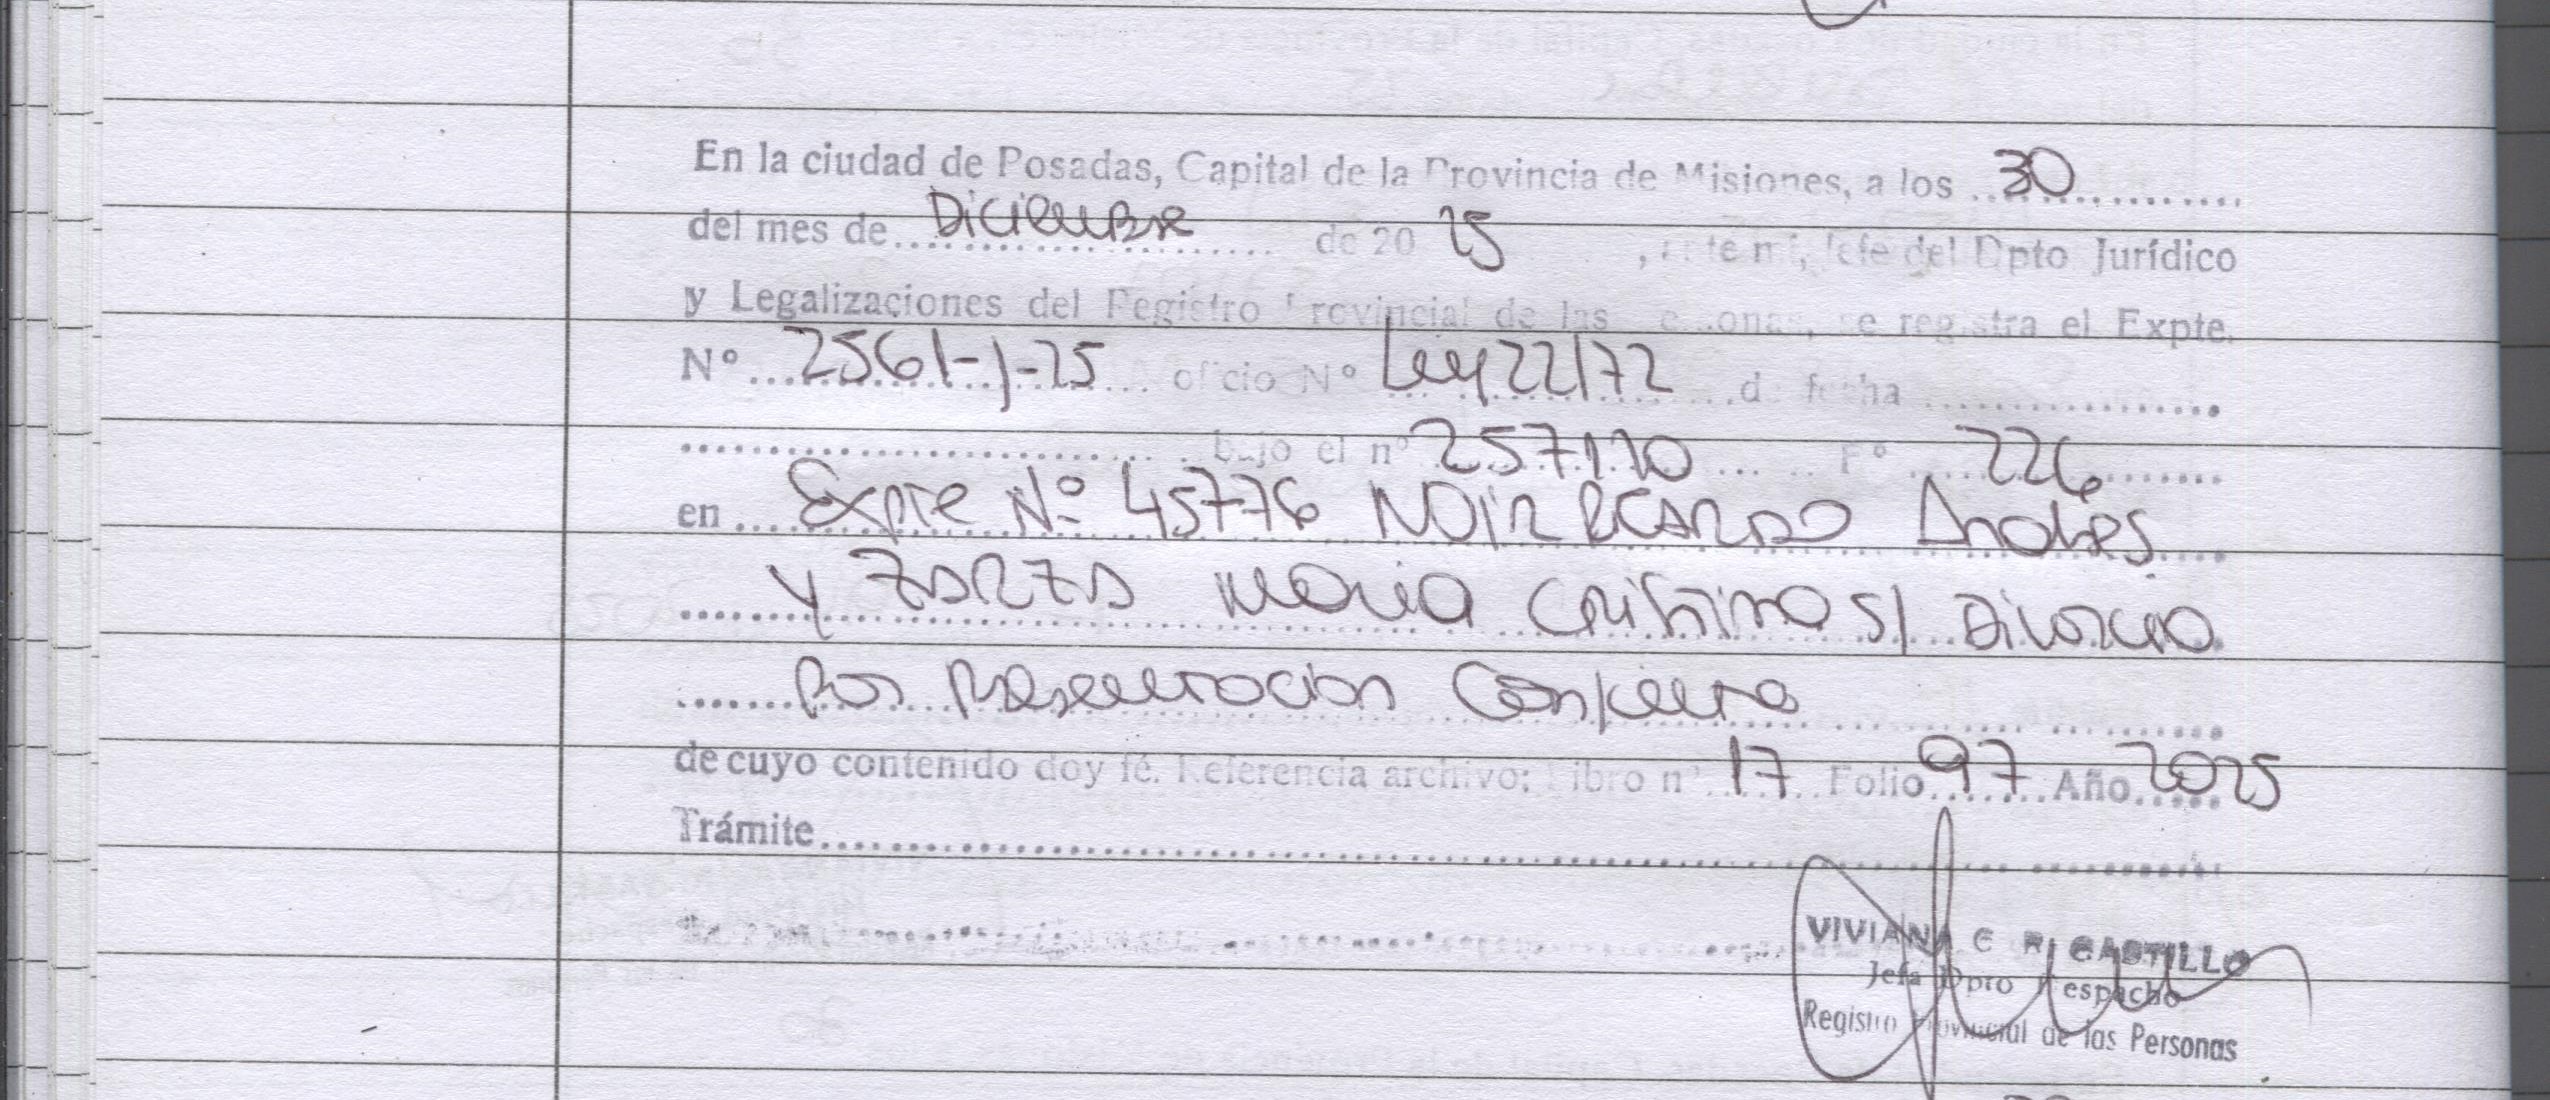 En la ciudad de Posadas, Capital de la Provincia de Misiones, a los 30
del mes de Diciembre de 20 25 , ante mi, Jefe del Dpto Jurídico
y Legalizaciones del Registro Provincial de las Personas, se registra el Expte.
Nº 2561-J-25 oficio Nº Ley 22172 de fecha
bajo el nº Fº 226
en Expte Nº 45776 NOIR RICARDO Andres
y ZARZA Maria Cristina S/ Divorcio
Por Presentacion Conjunta
de cuyo contenido doy fé. Referencia archivo: Libro nº 17 Folio 97 Año 2025
Trámite
VIVIANA C R CASTILLO
Jefa Dpto Despacho
Registro Provincial de las Personas